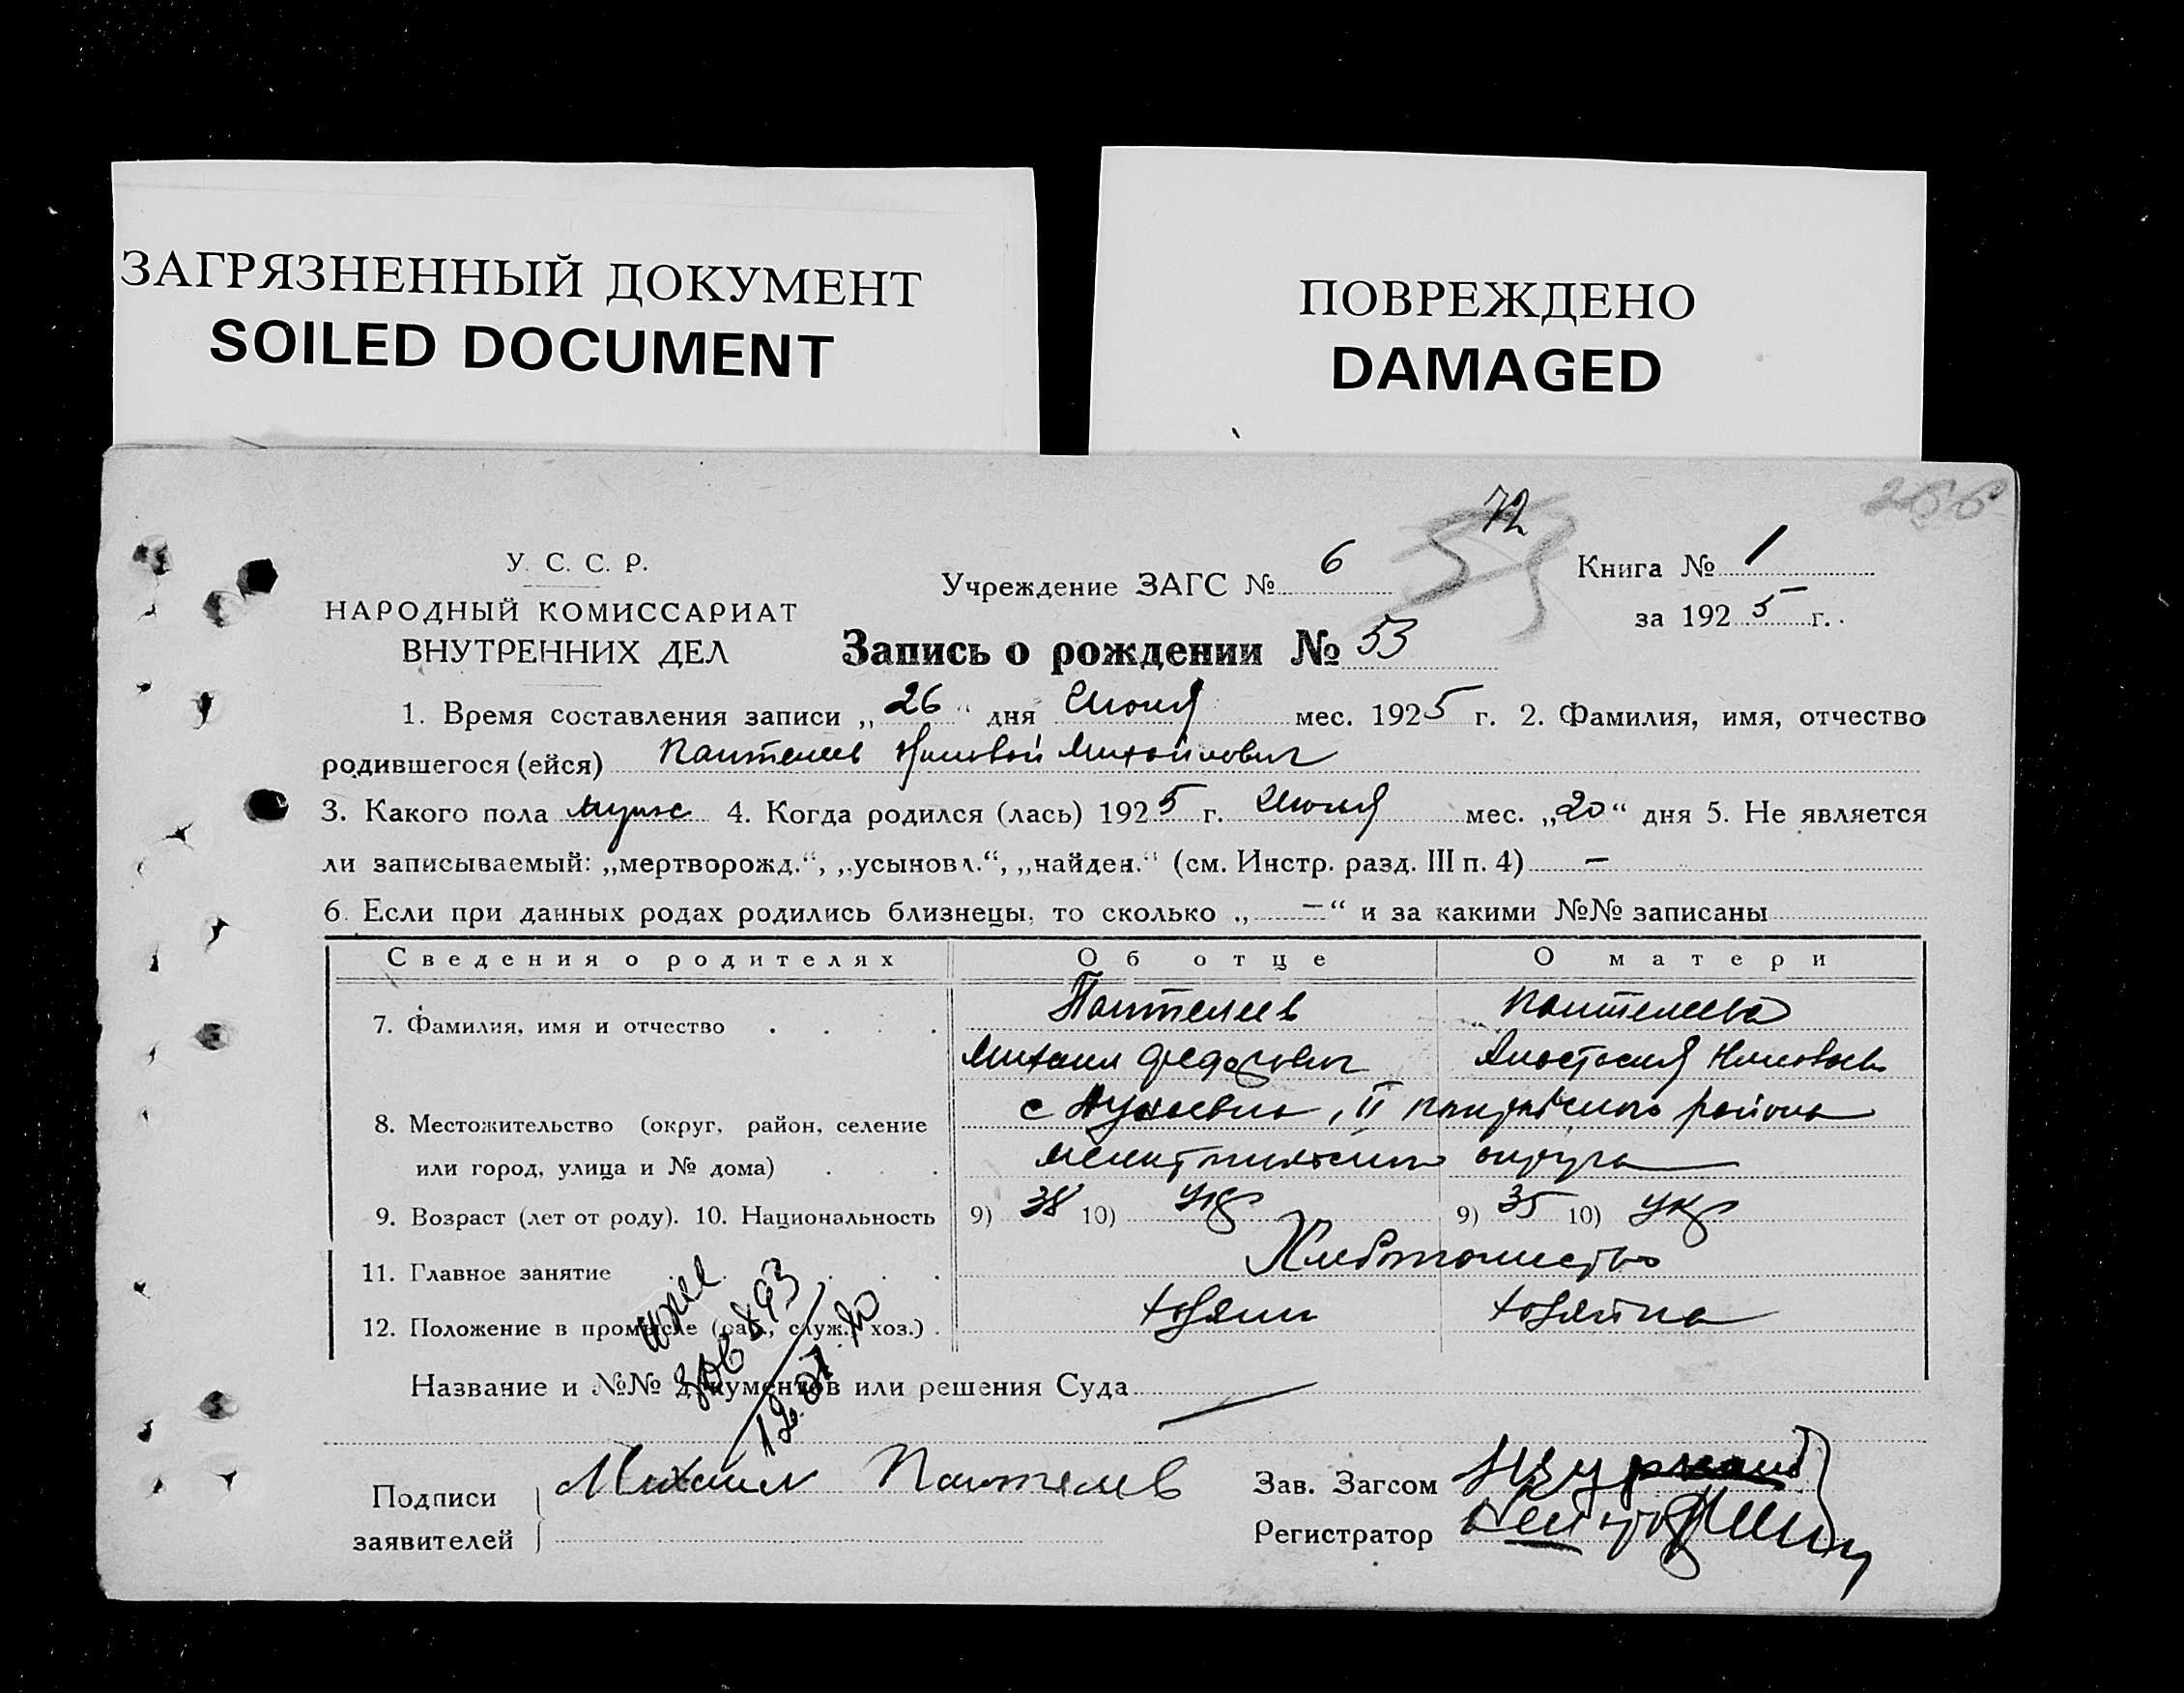 ЗАГРЯЗНЕННЫЙ ДОКУМЕНТ
SOILED DOCUMENT
ПОВРЕЖДЕНО
DAMAGED
256
72
У. С. С. Р.
НАРОДНЫЙ КОМИССАРИАТ
ВНУТРЕННИХ ДЕЛ
Учреждение ЗАГС № 6
Книга № 1
за 1925 г.
Запись о рождении № 53
1. Время составления записи „26“ дня Июня мес. 1925 г. 2. Фамилия, имя, отчество
родившегося (ейся) Пантелеев Михайлович
3. Какого пола мужс 4. Когда родился (лась) 1925 г. Июня мес. „20“ дня 5. Не является
ли записываемый: „мертворожд.“, „усыновл.“, „найден.“ (см. Инстр. разд. III п. 4) —
6. Если при данных родах родились близнецы, то сколько „—“ и за какими №№ записаны
Сведения о родителях Об отце О матери
7. Фамилия, имя и отчество Пантелеев Пантелеева
Михаил Федорович Анастасия
8. Местожительство (округ, район, селение с , II района
или город, улица и № дома) округа
9. Возраст (лет от роду). 10. Национальность 9) 38 10) укр 9) 35 10) укр
11. Главное занятие Хлебопашество
12. Положение в промысле (раб., служ., хоз.) хозяин хозяйка
Название и №№ документов или решения Суда —
Подписи заявителей Михаил Пантелеев
Зав. Загсом
Регистратор